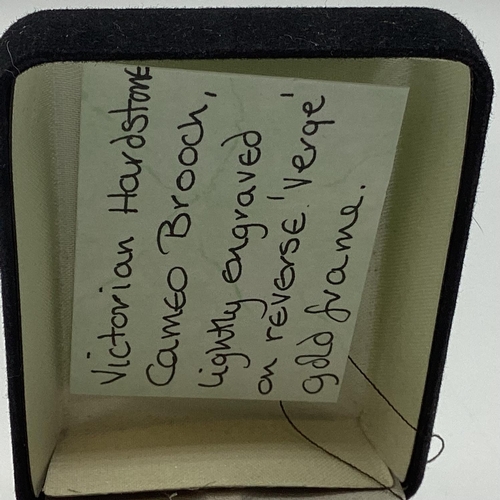 Victorian Hardstone
Cameo Brooch,
lightly engraved
on reverse 'Verge'
gold frame.